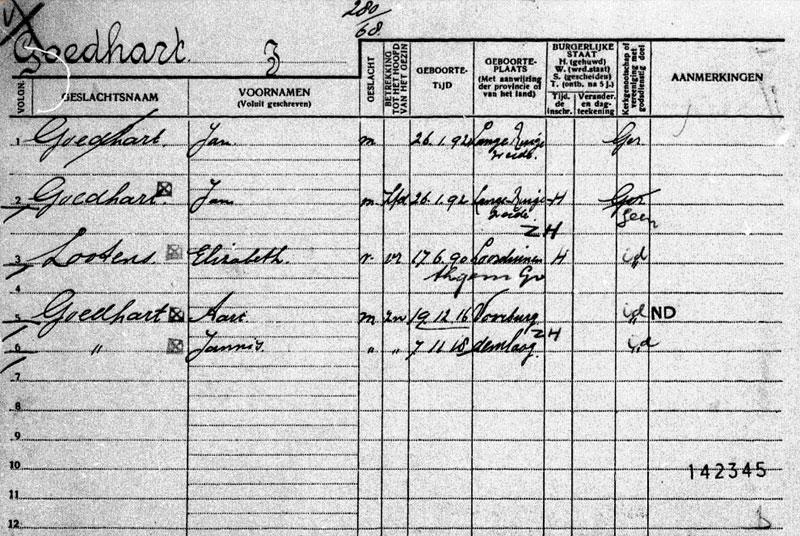 280
68
Goedhart. J
VOLGN.
GESLACHTSNAAM
VOORNAMEN
(Voluit geschreven)
GESLACHT
BETREKKING
TOT HET HOOFD
VAN HET GEZIN
GEBOORTE-
TIJD
GEBOORTE-
PLAATS
(Met aanwijzing
der provincie of
van het land)
BURGERLIJKE
STAAT
H. (gehuwd)
W. (wed.staat)
S. (gescheiden)
T. (ontb. na 5 j.)
Tijd.
de
inschr.
Verander.
en dag-
teekening
Kerkgenootschap of
vereeniging met
godsdienstig doel
AANMERKINGEN
1 Goedhart. Jan. m 26.1.92 Lange Ruige weide. Ger.
2 Goedhart. Jan m. Hfd 26.1.92 Lange Ruige weide. ZH H Ger Geen
3 Lootens Elisabeth. v. vr 17.6.90 Loosduinen H id
4
5 Goedhart Aart. m zn 19.12.16 Voorburg ZH id ND
6 " Jannis. " " 7 11 18 den Haag. id
7
8
9
10 142345
11
12